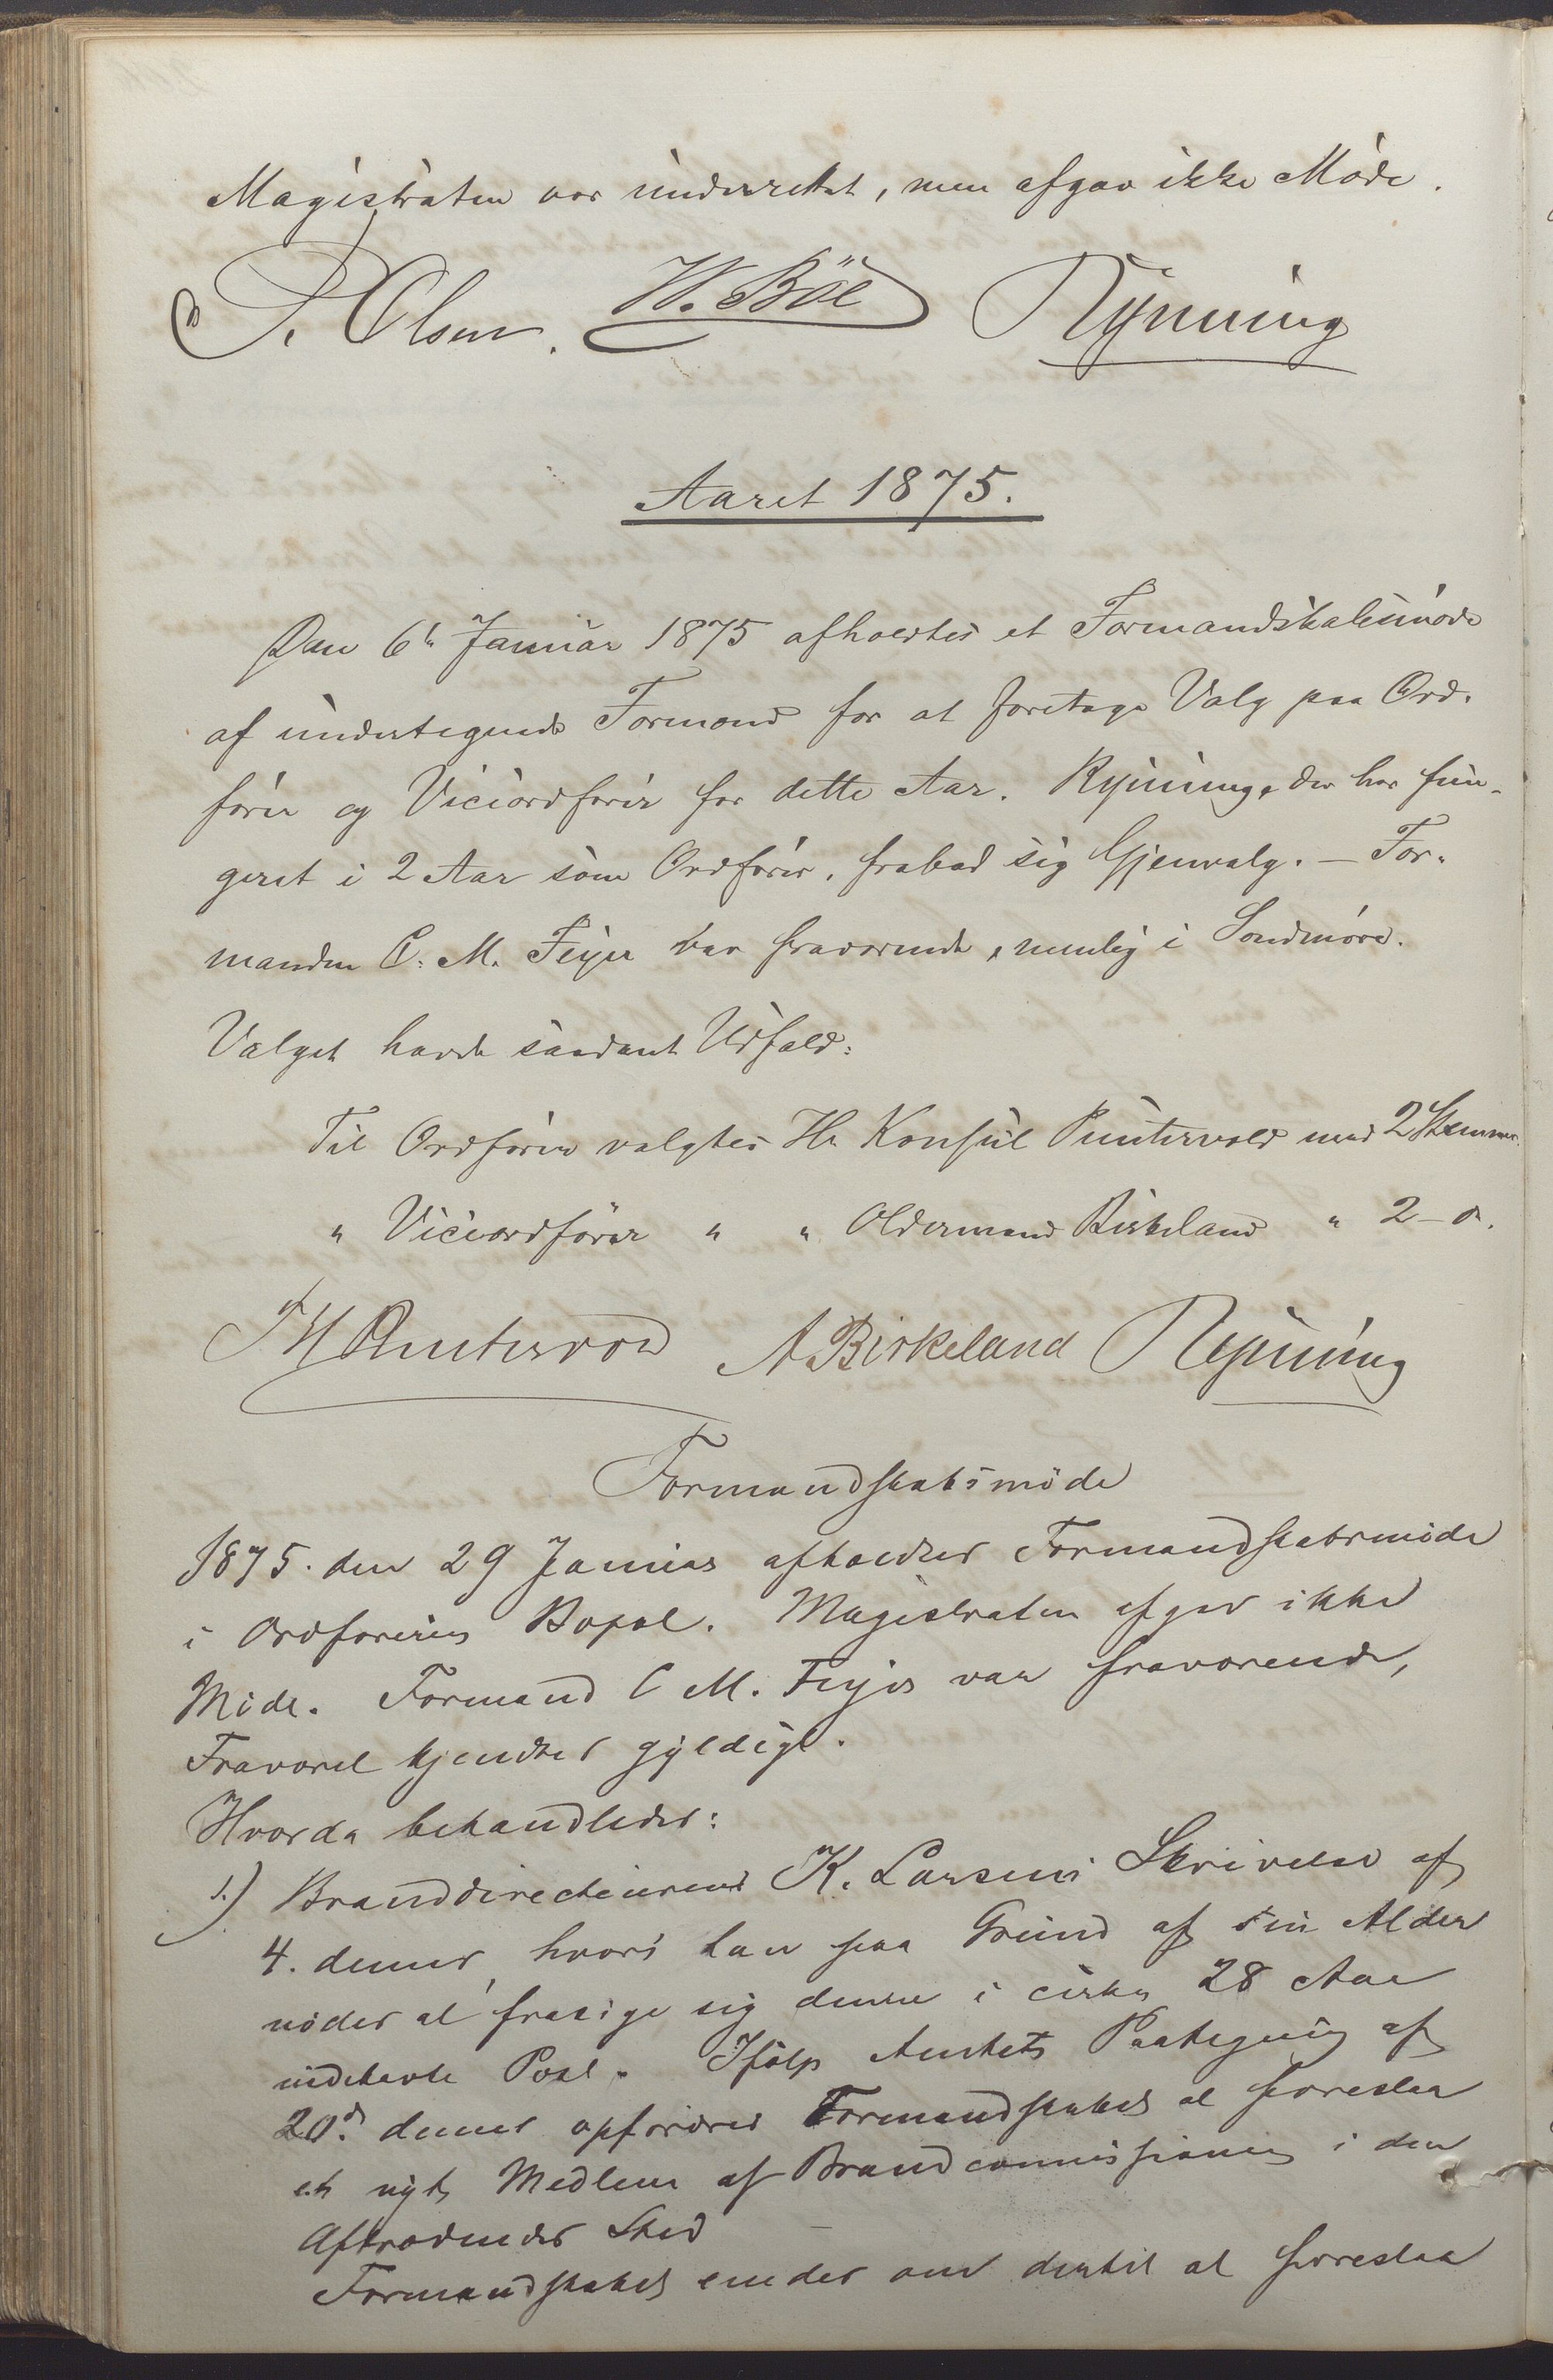 Magistraten var underrettet, men afgav ikke Möde.
P. Olsen. W. Böe Rynning
Aaret 1875.
Den 6te Januar 1875 afholdtes et Formandskabsmöde
af undertegnede Formænd for at foretage Valg paa Ord-
förer og Viceordförer for dette Aar. Rynning, der har fun-
geret i 2 Aar som Ordförer, frabad sig Gjenvalg. – For-
manden C. M. Feyer var fraværende, nemlig i Söndmöre.
Valget havde saadant Udfald:
Til Ordförer valgtes Hr. Konsul Puntervold med 2 Stemmer.
" Viceordförer " " Oldermand Birkeland " 2 – do.
Puntervold A Birkeland Rynning
Formandskabsmöde
1875. den 29 Januar afholdtes Formandskabsmöde
i Ordförerens Bopæl. Magistraten afgav ikke
Möde. Formand C M. Feyer var fraværende,
Fraværel kjendtes gyldigt.
Hvorda behandledes:
1.) Branddirecteurens K. Larsens Skrivelse af
4. dennes, hvori han paa Grund af sin Alder
nödes at frasige sig denne i cirka 28 Aar
indehavte Post. Ifölge Amtets Paategning af
20de dennes opfordres Formandskabet at foreslaa
et nyt Medlem af Brandcommissionen i den
Aftrædendes Sted –
Formandskabet enedes om dertil at foreslaa